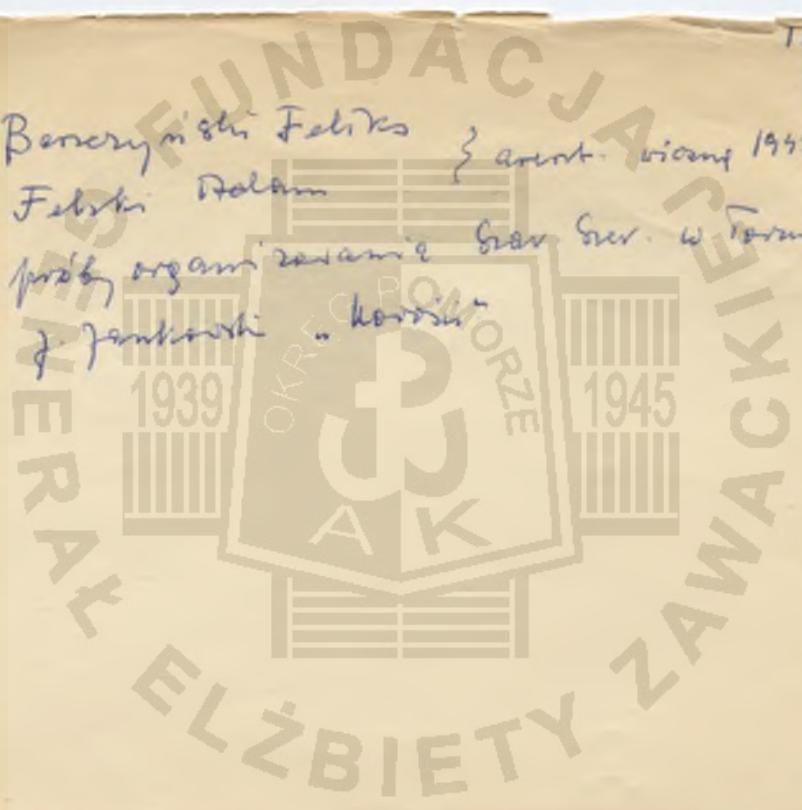 T
Felski Adam } areszt. wiosną 194
próby organizowania Szar. Szer. w Toru
J. Jankowski „
Feliks
FUNDACJA GENERAŁ ELŻBIETY ZAWACKIEJ
OKRĘG POMORZE
1939 1945
AK